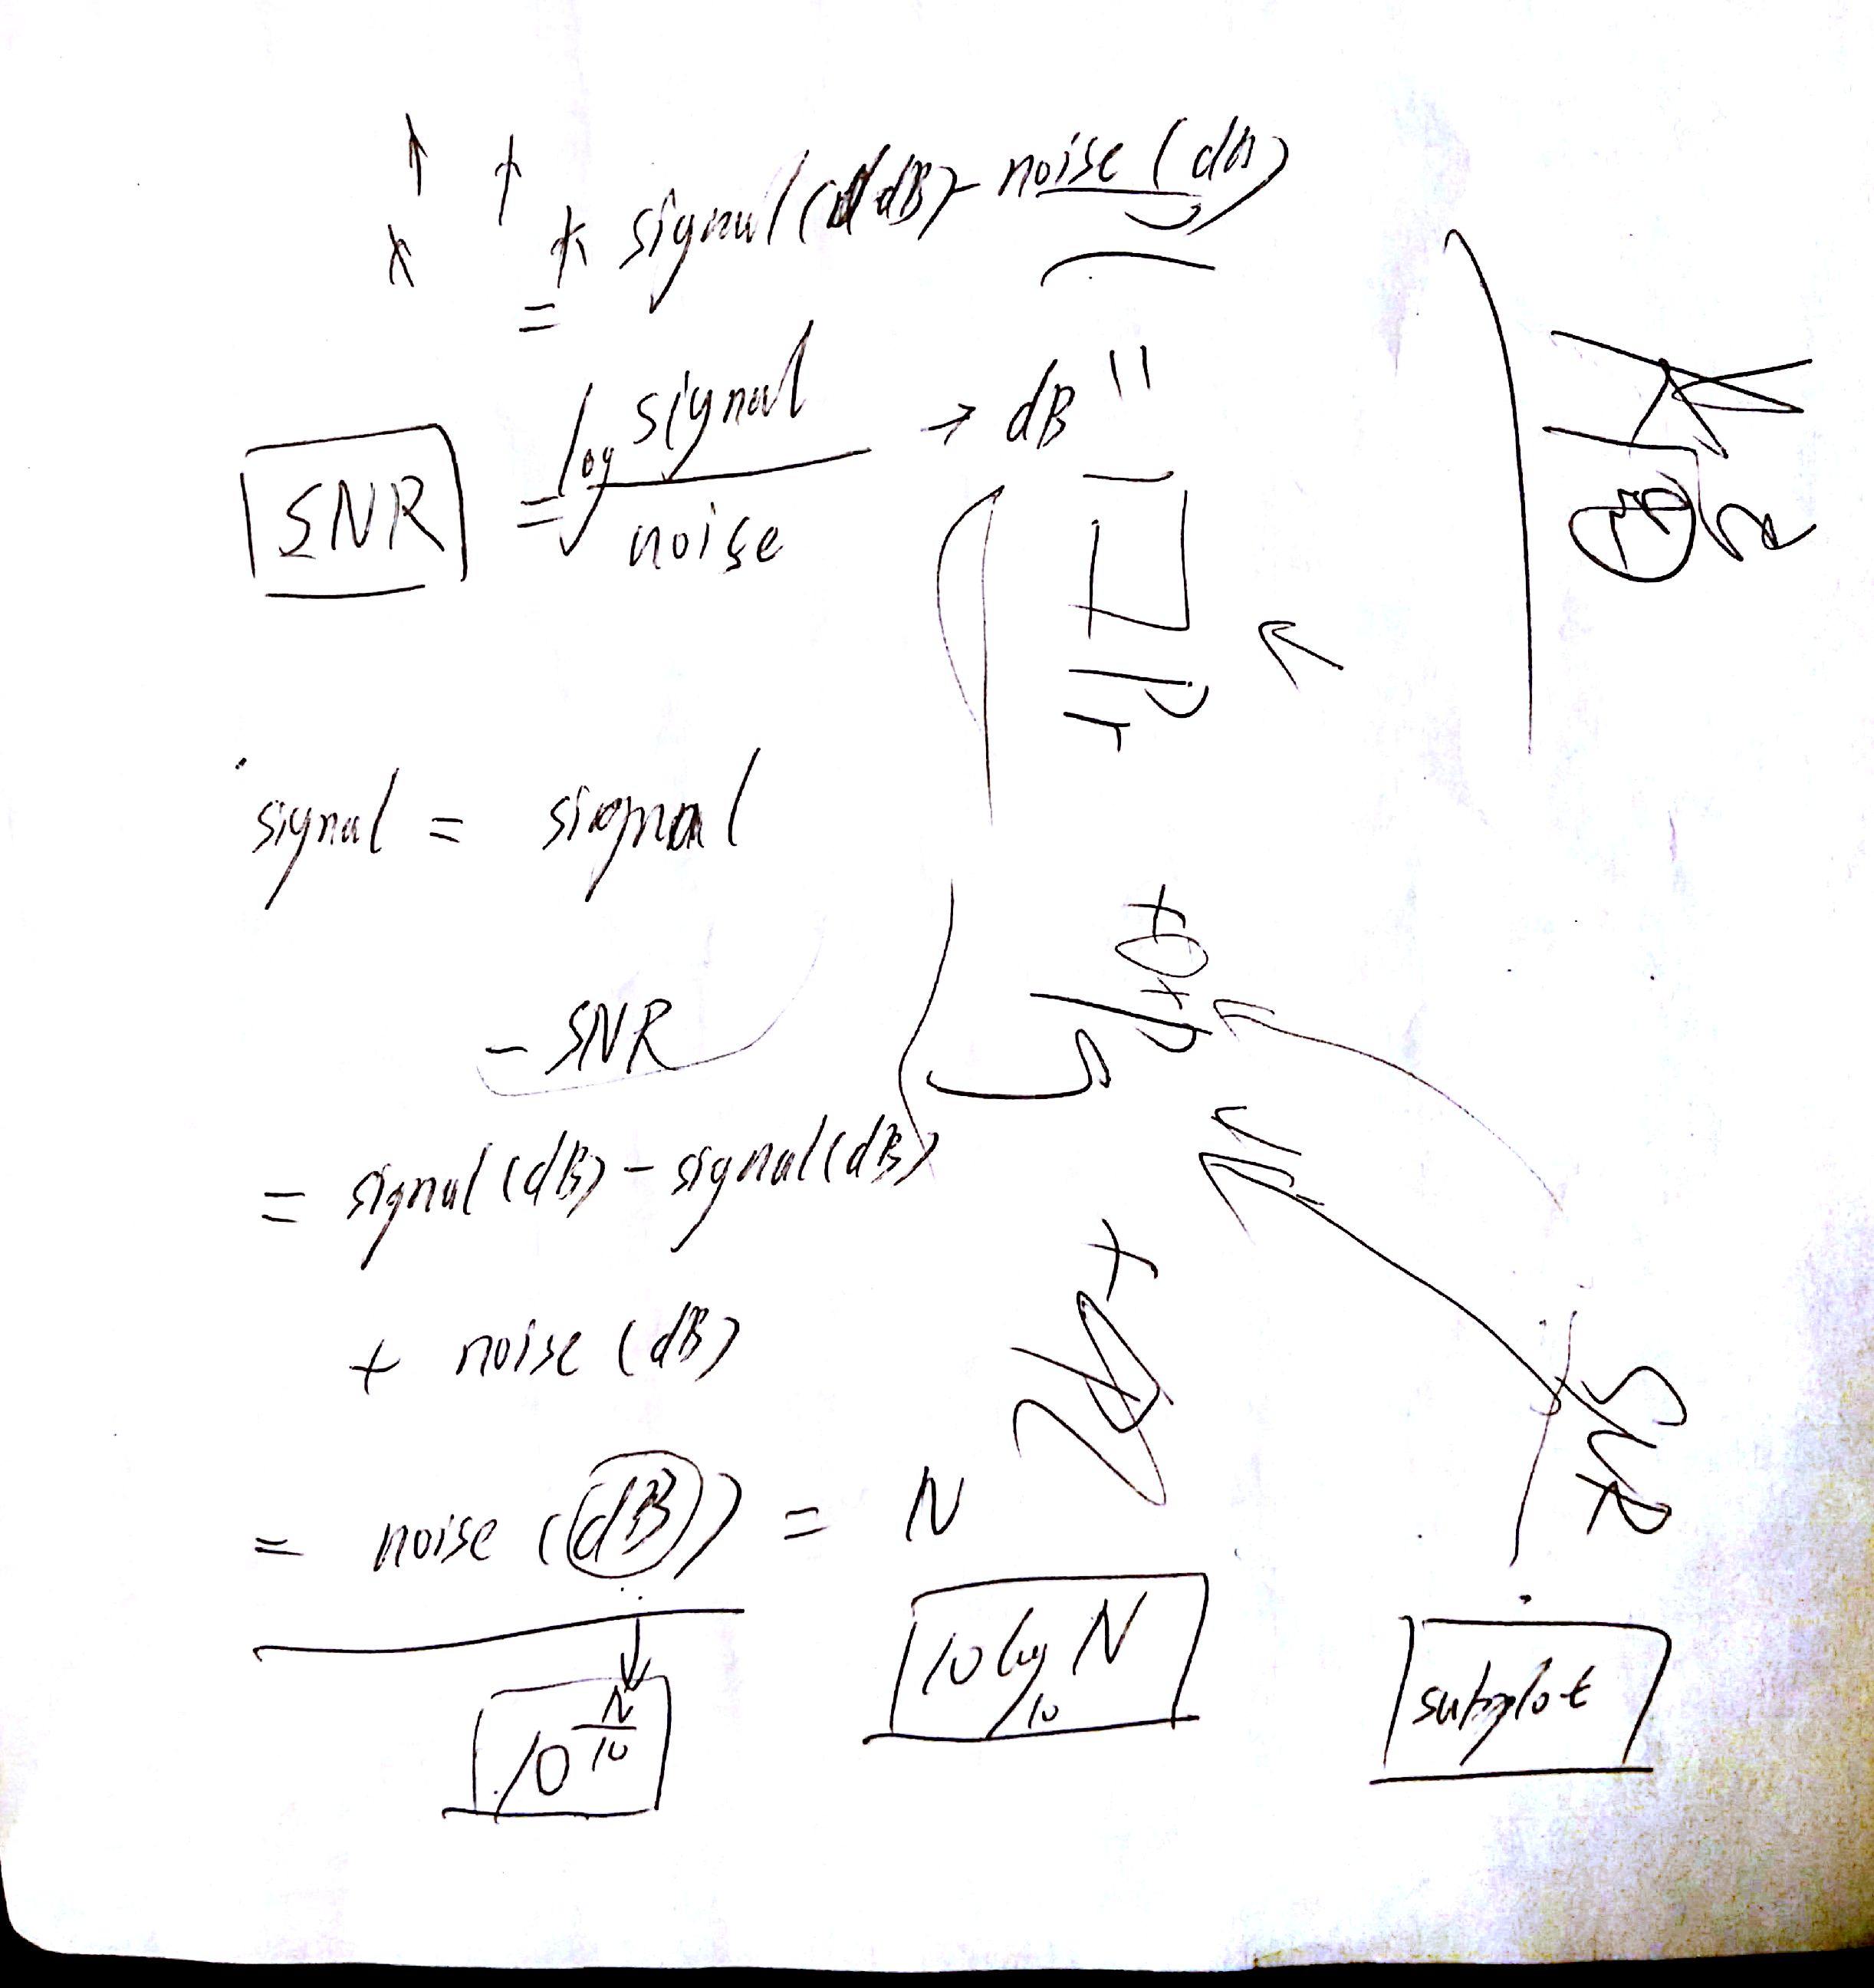 signal (dB) - noise (dB)
=
SNR = log signal / noise → dB
signal = signal
- SNR
= signal (dB) - signal (dB)
+ noise (dB)
= noise (dB) = N
SNR
10 log10 N
subplot
10^(N/10)